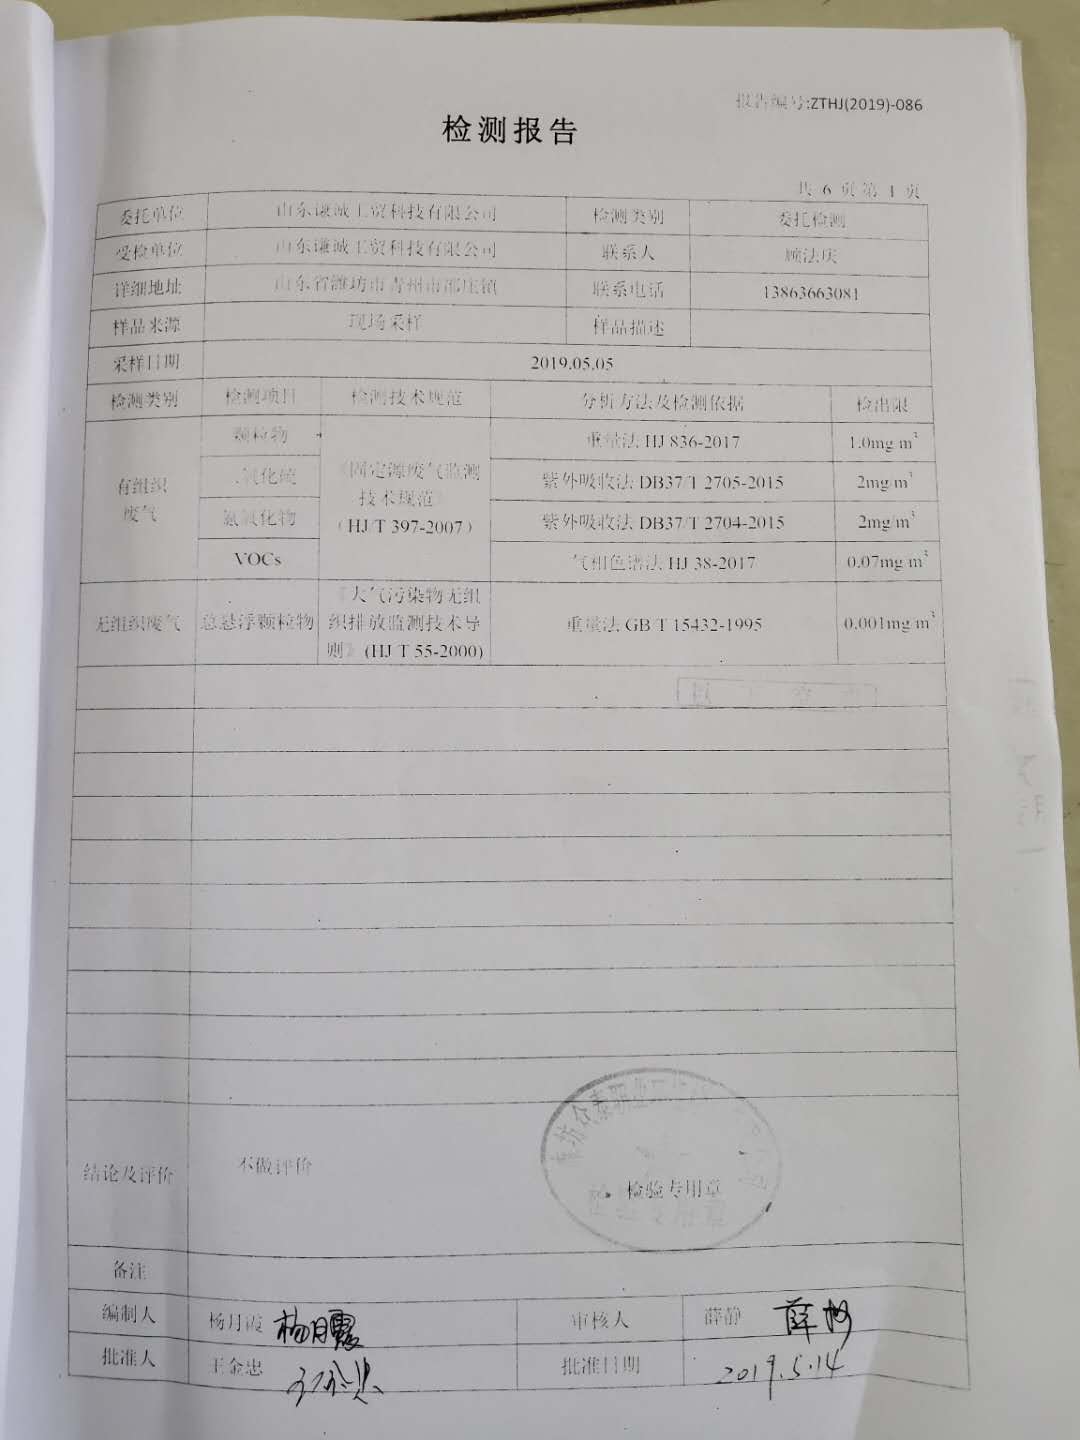 报告编号:ZTHJ(2019)-086
检测报告
共 6 页 第 1 页
委托单位 山东谦诚工贸科技有限公司 检测类别 委托检测
受检单位 山东谦诚工贸科技有限公司 联系人 顾法庆
详细地址 山东省潍坊市青州市邵庄镇 联系电话 13863663081
样品来源 现场采样 样品描述
采样日期 2019.05.05
检测类别 检测项目 检测技术规范 分析方法及检测依据 检出限
有组织
废气
颗粒物
二氧化硫
氮氧化物
VOCs
《固定源废气监测
技术规范》
(HJ/T 397-2007)
重量法 HJ 836-2017 1.0mg/m³
紫外吸收法 DB37/T 2705-2015 2mg/m³
紫外吸收法 DB37/T 2704-2015 2mg/m³
气相色谱法 HJ 38-2017 0.07mg/m³
无组织废气 总悬浮颗粒物
《大气污染物无组
织排放监测技术导
则》(HJ/T 55-2000)
重量法 GB/T 15432-1995 0.001mg/m³
结论及评价 不做评价
检验专用章
检验专用章
备注
编制人 杨月霞 杨月霞 审核人 薛静 薛静
批准人 王金忠 王金忠 批准日期 2019.5.14